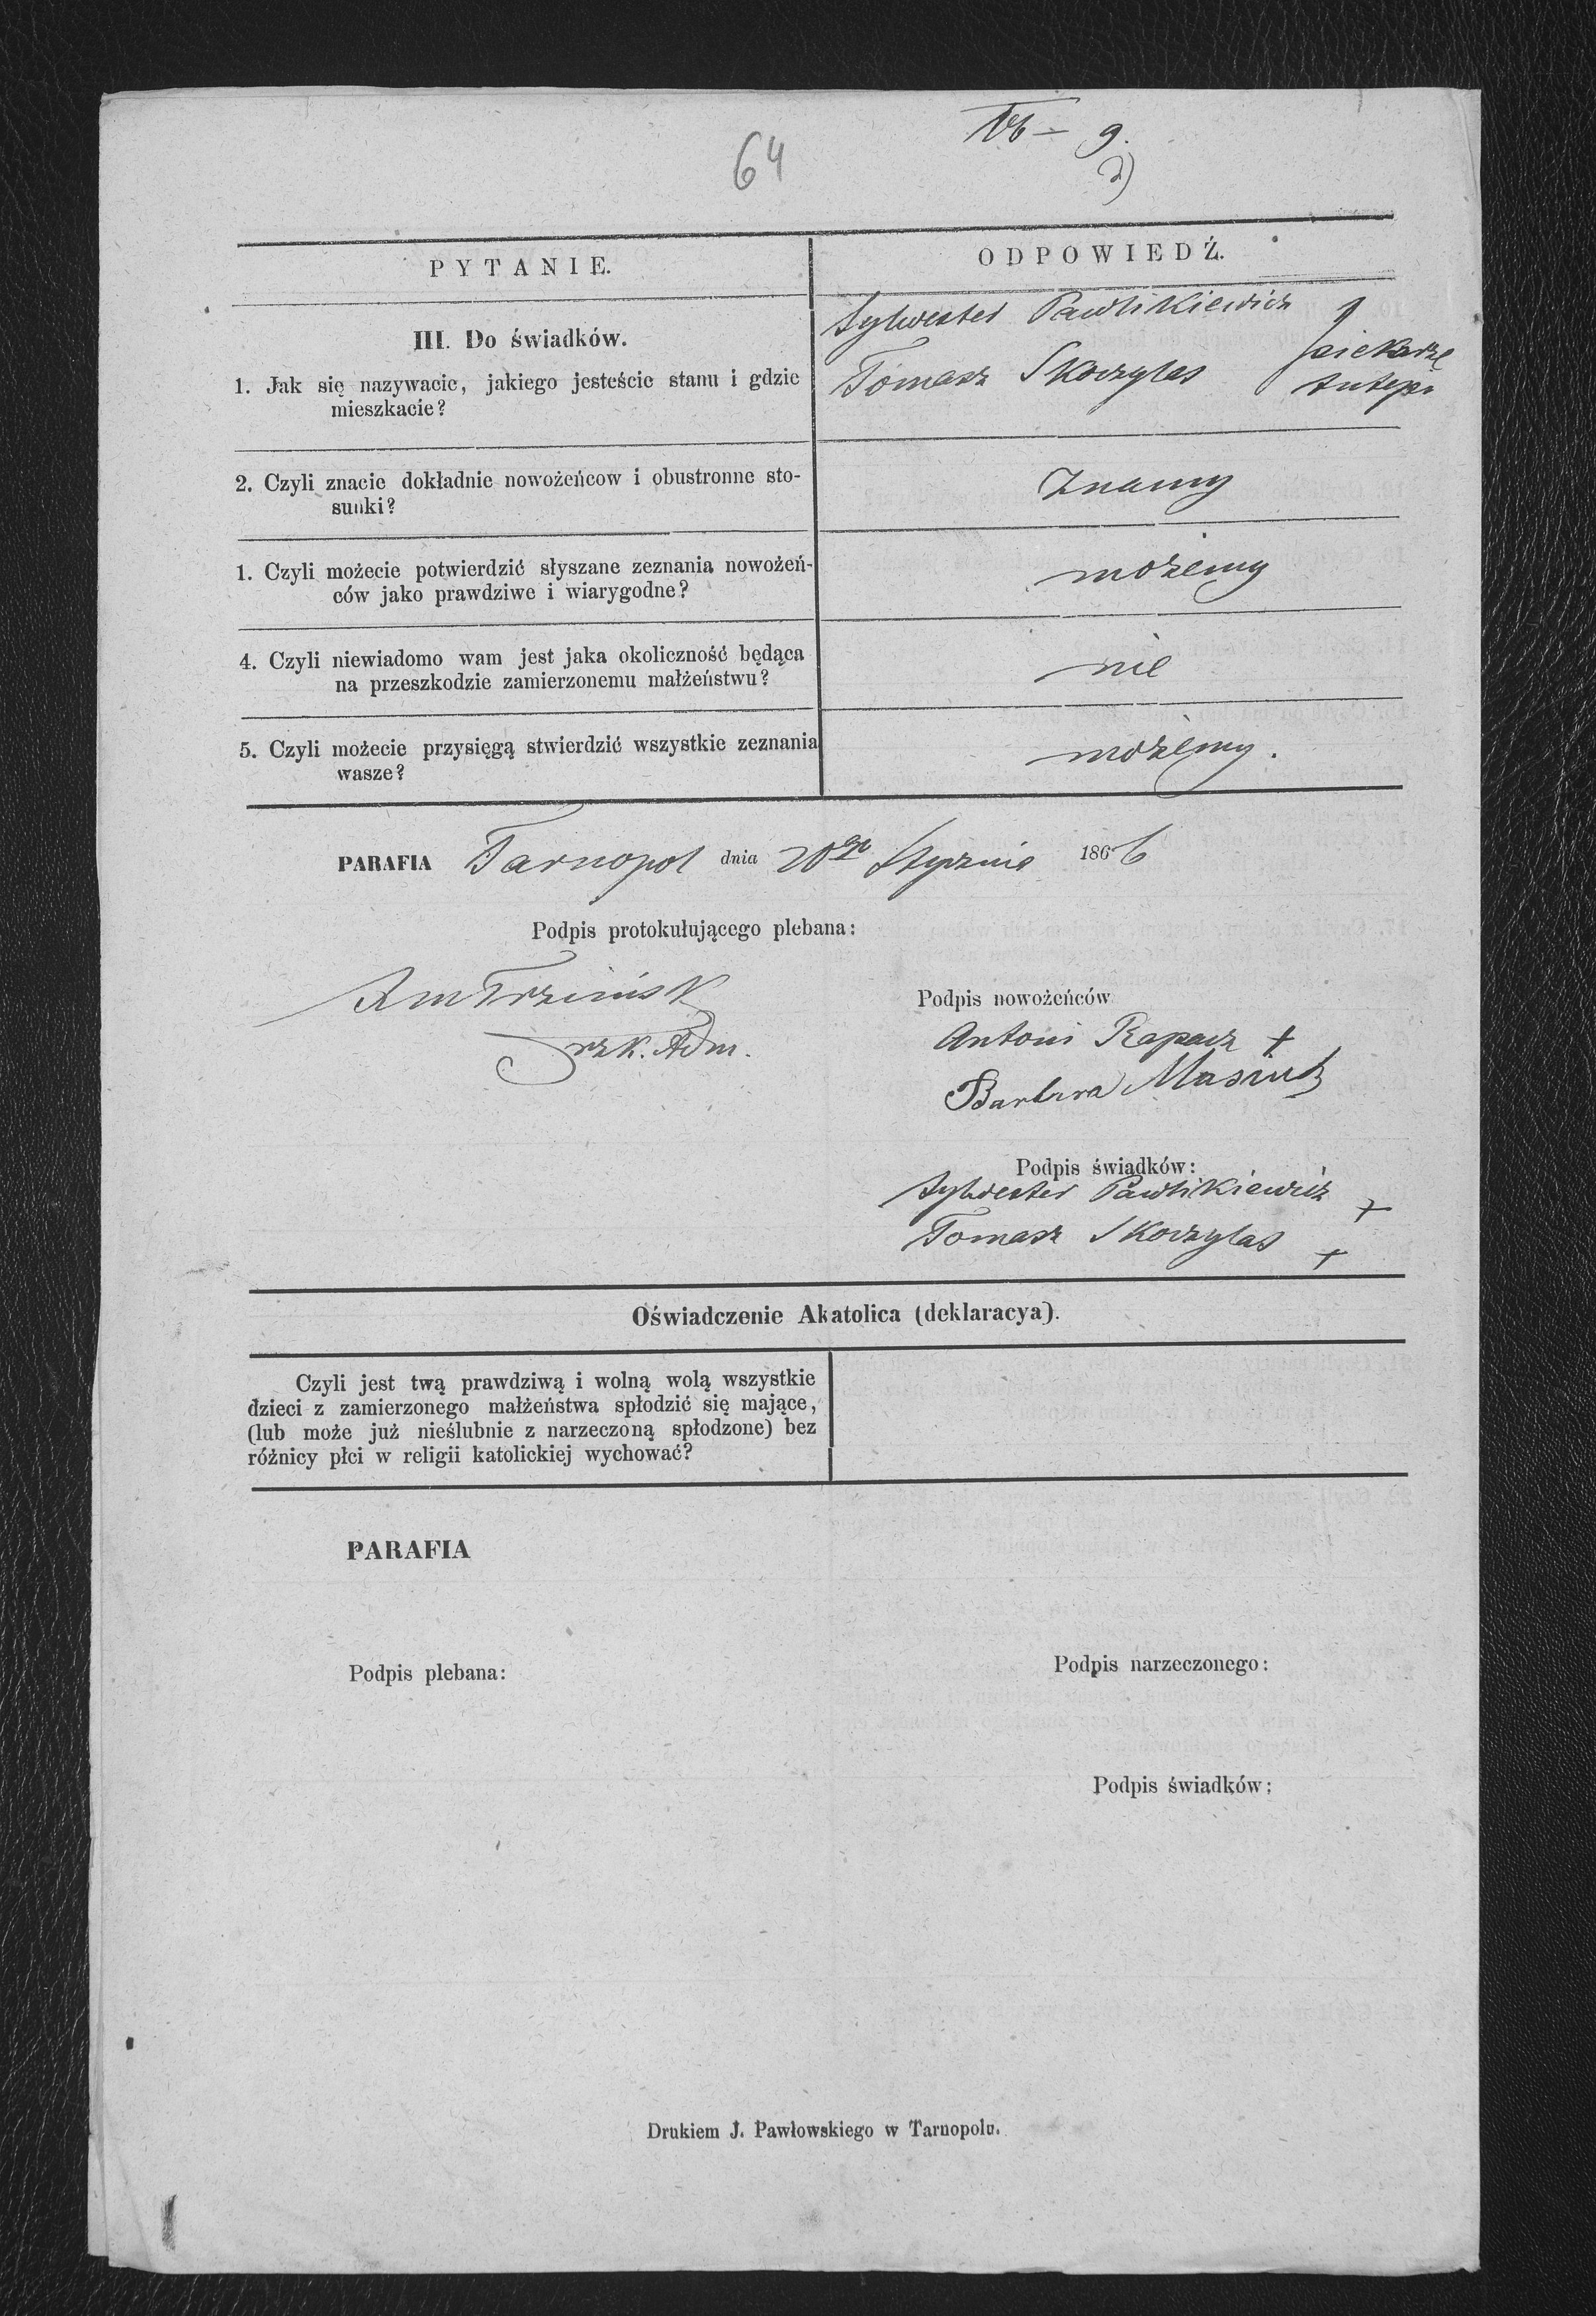 64
9.
2)
PYTANIE.
ODPOWIEDŹ.
III. Do świadków.
1. Jak się nazywacie, jakiego jesteście stanu i gdzie
mieszkacie?
Sylwester Pawlikiewicz
Tomasz Skoczylas
piekarze
tutejsi
2. Czyli znacie dokładnie nowożeńcow i obustronne sto-
sunki?
Znamy
1. Czyli możecie potwierdzić słyszane zeznania nowożeń-
ców jako prawdziwe i wiarygodne?
możemy
4. Czyli niewiadomo wam jest jaka okoliczność będąca
na przeszkodzie zamierzonemu małżeństwu?
nie
5. Czyli możecie przysięgą stwierdzić wszystkie zeznania
wasze?
możemy.
PARAFIA Tarnopol dnia 20go Stycznia 1866
Podpis protokułującego plebana:
Adm.
Podpis nowożeńców
Antoni Rapacz +
Barbara
Podpis świadków:
Sylwester Pawlikiewicz +
Tomasz Skoczylas +
Oświadczenie Akatolica (deklaracya).
Czyli jest twą prawdziwą i wolną wolą wszystkie
dzieci z zamierzonego małżeństwa spłodzić się mające,
(lub może już nieślubnie z narzeczoną spłodzone) bez
różnicy płci w religii katolickiej wychować?
PARAFIA
Podpis plebana:
Podpis narzeczonego:
Podpis świadków:
Drukiem J. Pawłowskiego w Tarnopolu.